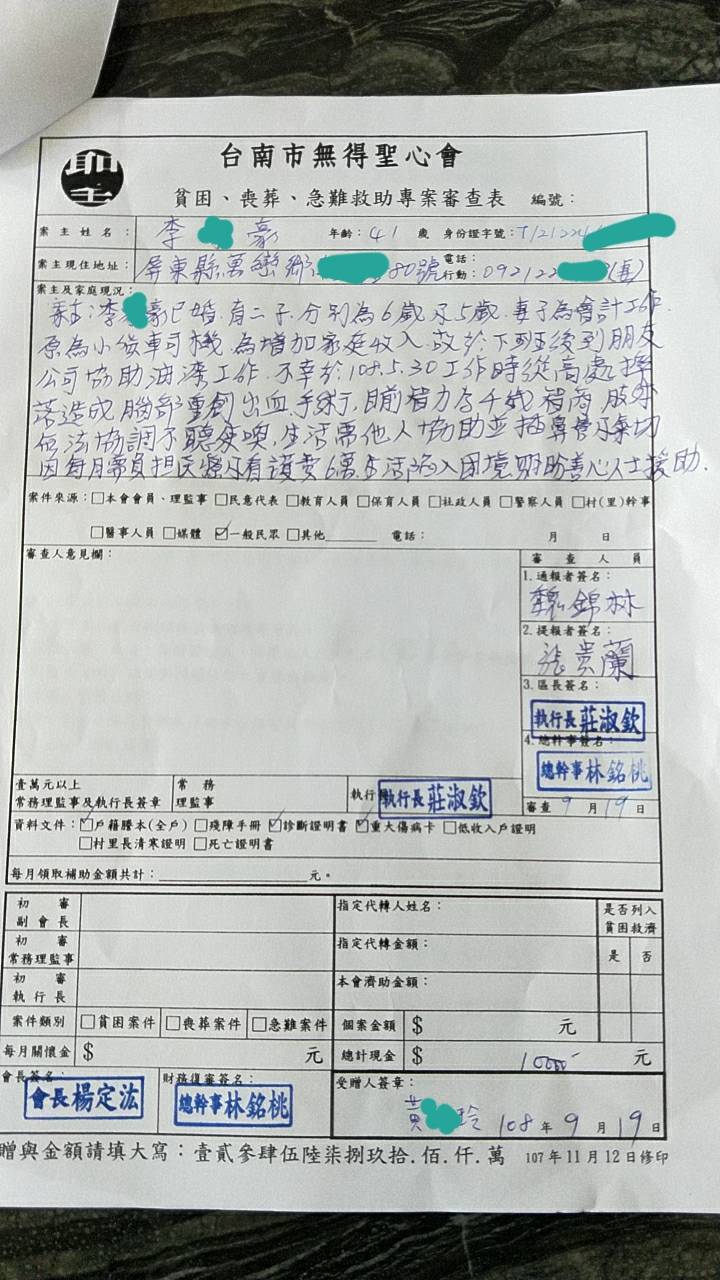 聖
台南市無得聖心會
貧困、喪葬、急難救助專案審查表 編號：
案主姓名： 李 豪 年齡：41 歲 身份證字號：T/2122
案主現住地址： 屏東縣萬巒鄉 80號 電話： 行動：09212
案主及家庭現況：
案主：李 豪已婚.有二子.分別為6歲及5歲.妻子為會計工作.
原為小貨車司機.為增加家庭收入.故於下班後到朋友
公司協助油漆工作.不幸於108.5.30工作時從高處摔
落造成腦部重創出血手術,目前智力為4歲 智商
無法協調不聽使喚,生活需他人協助並插鼻胃
因每月需負担医療 看護費6萬.生活陷入困境 善心人士援助.
案件來源：□本會會員、理監事 □民意代表 □教育人員 □保育人員 □社政人員 □警察人員 □村(里)幹事
□醫事人員 □媒體 ☑一般民眾 □其他 電話： 月 日
審查人意見欄： 審查人員
1.通報者簽名：
魏錦林
2.提報者簽名：
張貴蘭
3.區長簽名：
執行長莊淑欽
4.總幹事簽名：
總幹事林銘桃
壹萬元以上 常務
常務理監事及執行長簽章 理監事 執行 執行長莊淑欽 審查 9 月 19 日
資料文件：☑戶籍謄本(全戶) □殘障手冊 ☑診斷證明書 ☑重大傷病卡 □低收入戶證明
□村里長清寒證明 □死亡證明書
每月領取補助金額共計： 元。
初審副會長 指定代轉人姓名： 是否列入貧困救濟
初審常務理監事 指定代轉金額： 是 否
初審執行長 本會濟助金額：
案件類別 □貧困案件 □喪葬案件 □急難案件 個案金額 $ 元
每月關懷金 $ 元 總計現金 $ 10000- 元
會長簽名： 財務復審簽名： 受贈人簽章：
會長楊定浤 總幹事林銘桃 黃 玲 108 年 9 月 19 日
贈與金額請填大寫：壹貳參肆伍陸柒捌玖拾.佰.仟.萬 107年11月12日修印